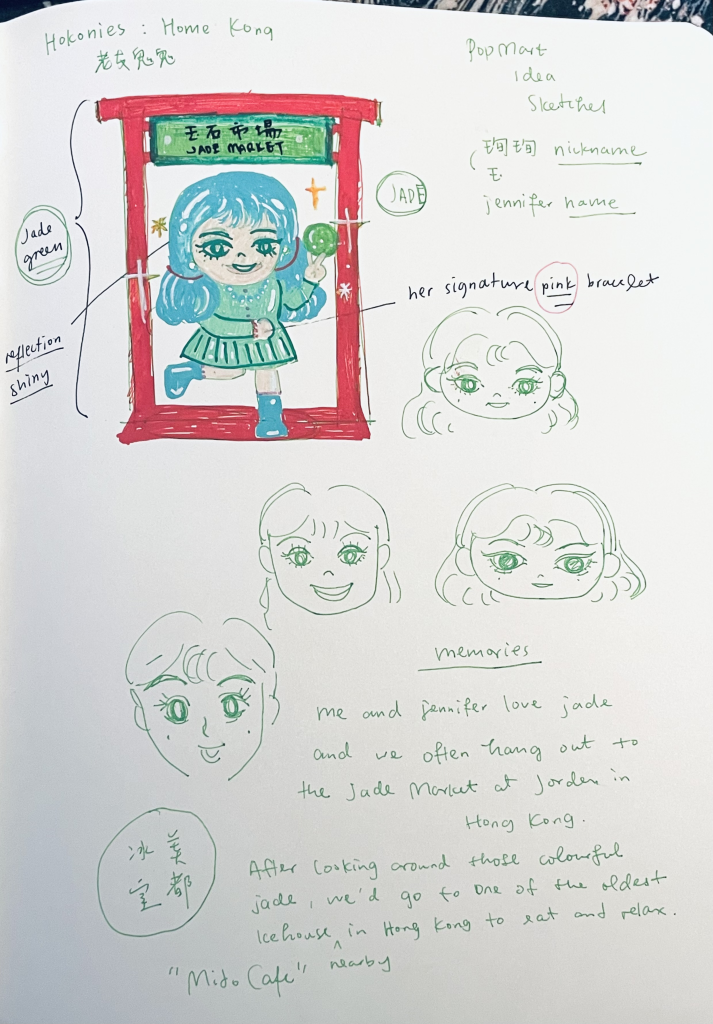 Hokonies : Home Kong
老友鬼鬼
PopMart
idea
Sketches
玉石市場
JADE MARKET
JADE
珣珣 nickname
玉
jennifer name
Jade
green
her signature pink bracelet
reflection
shiny
memories
me and jennifer love jade
and we often hang out to
the Jade Market at Jorden in
Hong Kong.
美都
冰室
After looking around those colourful
jade, we'd go to one of the oldest
Icehouse ^ in Hong Kong to eat and relax.
nearby
"Mido Cafe"